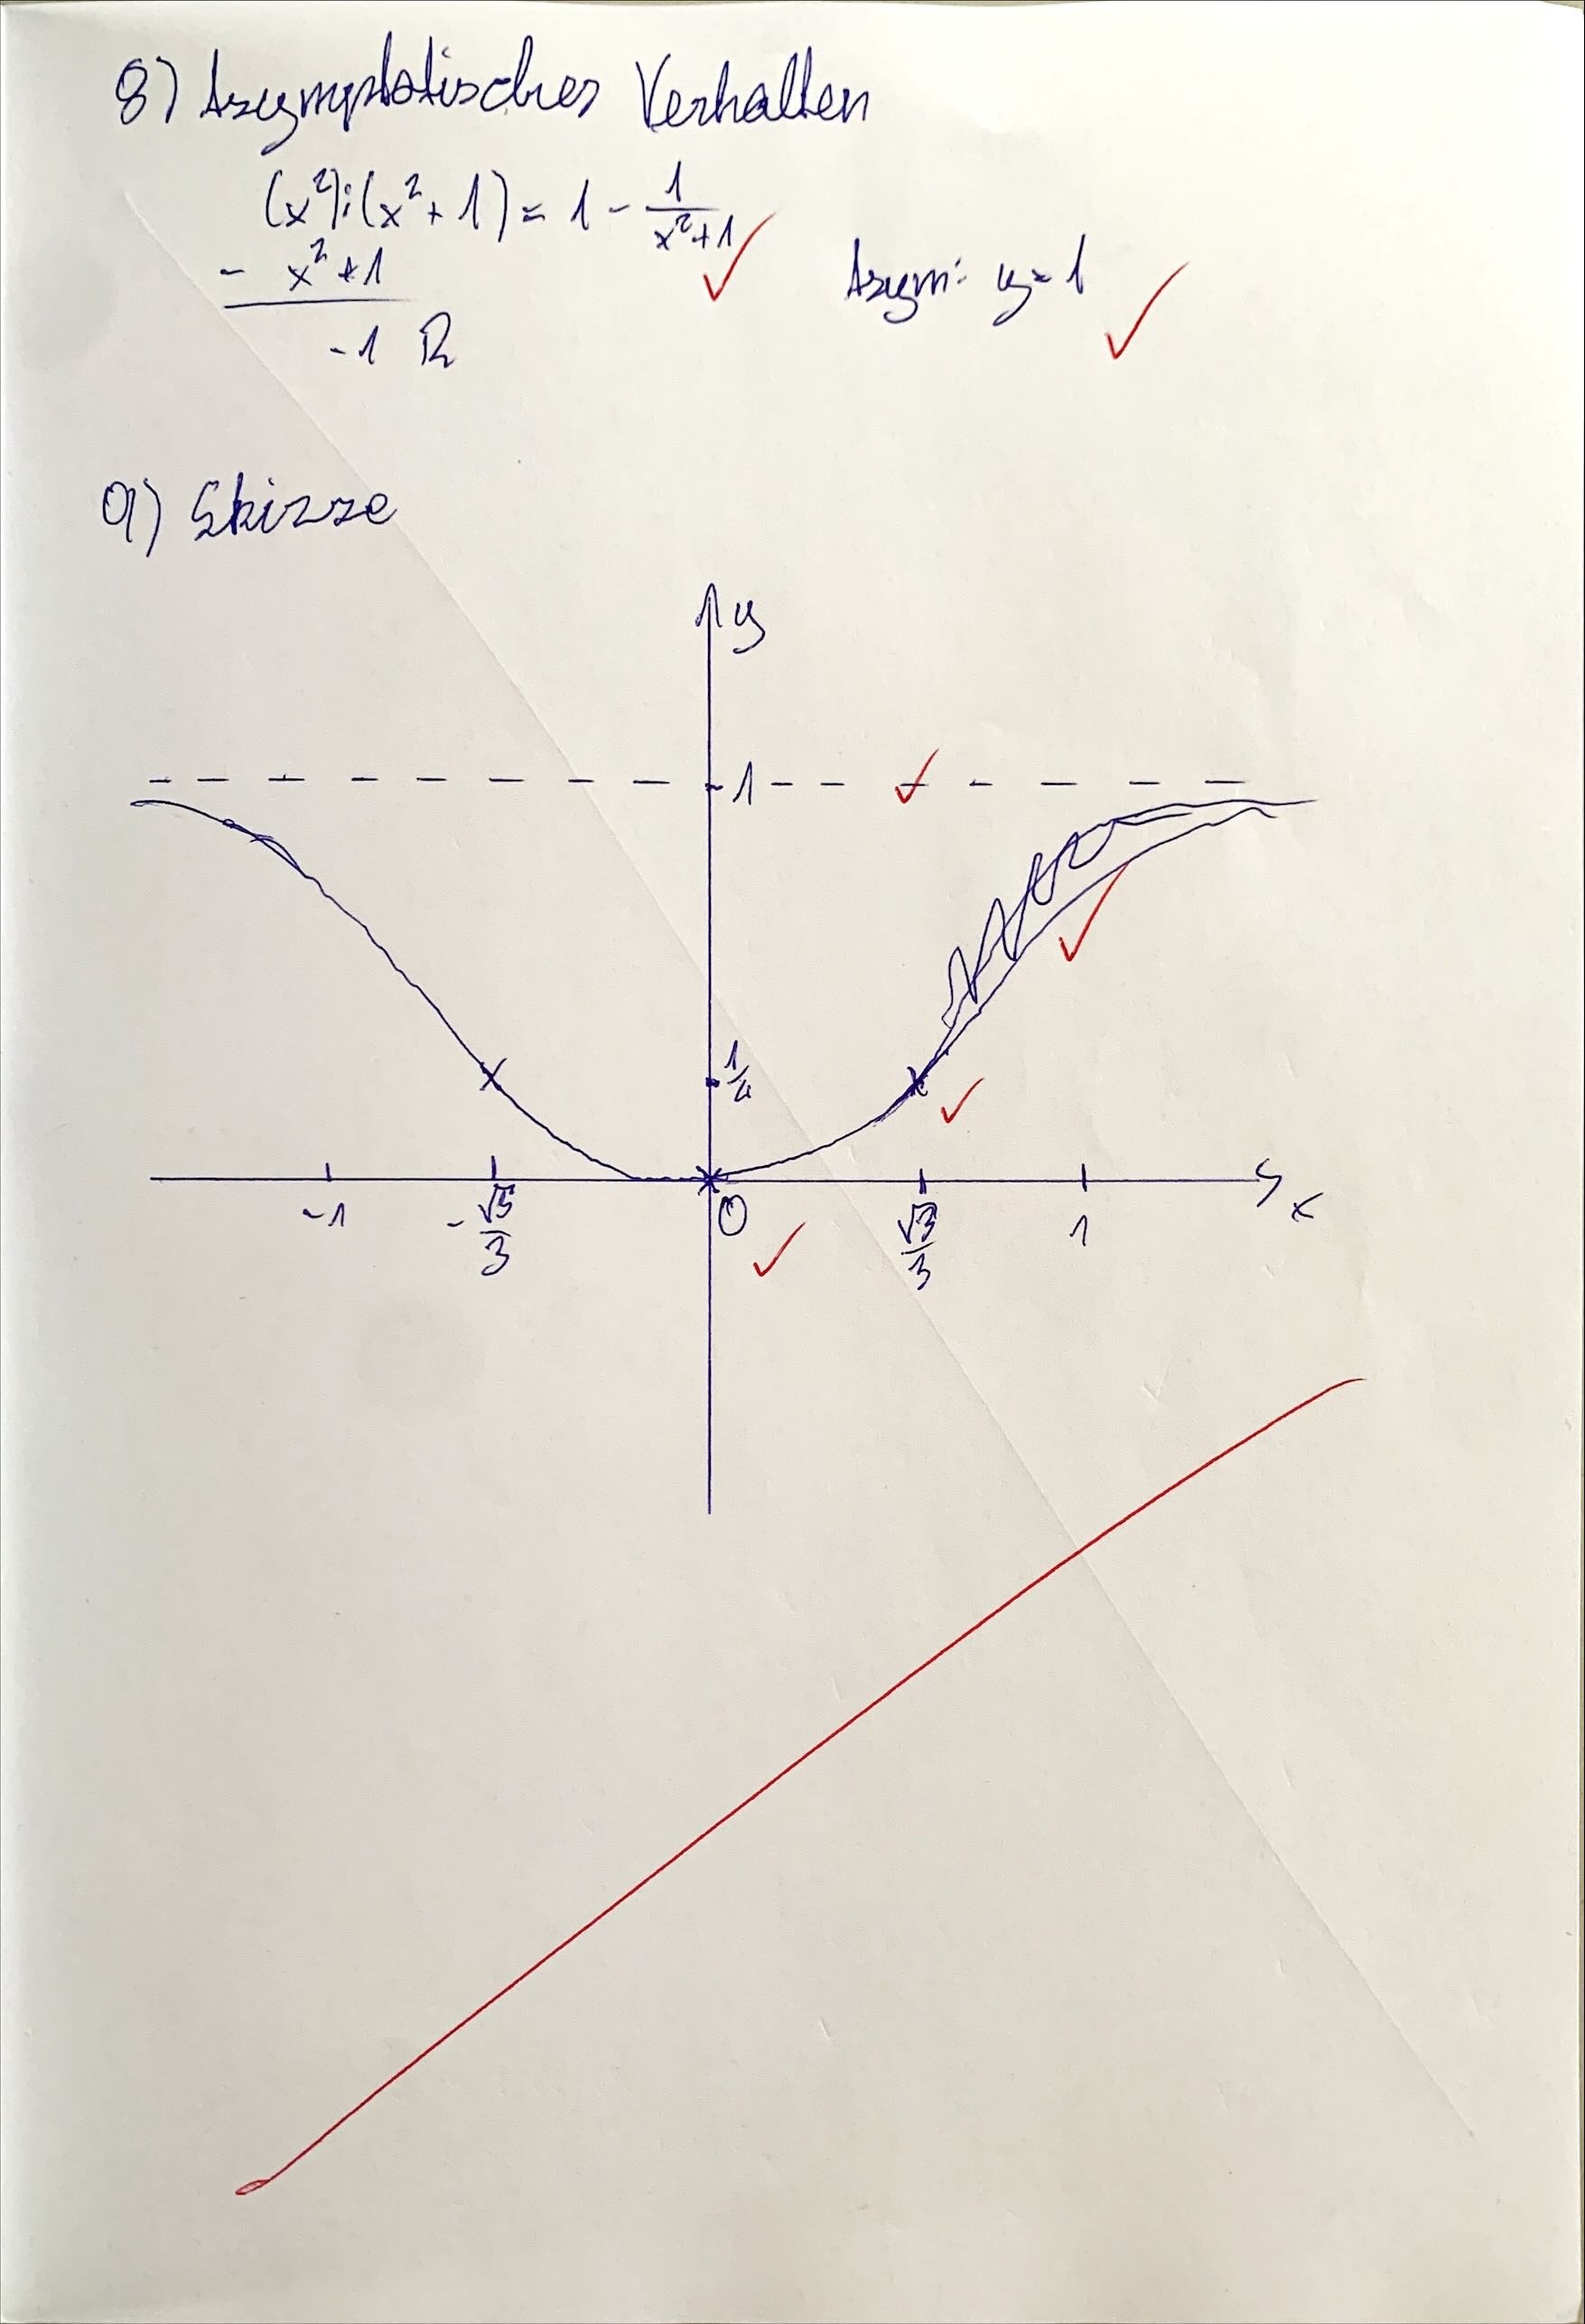 8) Asymptotisches Verhalten
(x²):(x²+1) = 1 - 1/(x²+1)
- x²+1
-1 R
Asym: y=1
9) Skizze
y
1
1/4
-1 -√3/3 0 √3/3 1 x